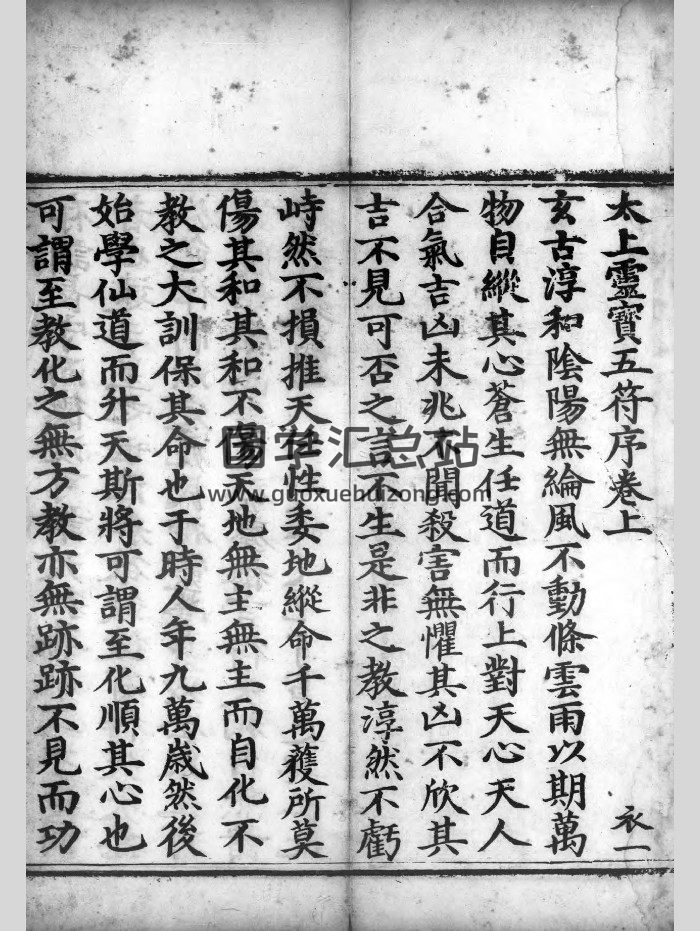 太上靈寳五符序卷上 衣一
玄古淳和陰陽無綸風不動條雲雨以期萬
物自縱其心蒼生任道而行上對天心天人
合氣吉凶未兆不聞殺害無懼其凶不欣其
吉不見可否之言不生是非之教淳然不虧
峙然不損推天任性委地縱命千萬蒦所莫
傷其和其和不傷天地無主無主而自化不
教之大訓保其命也于時人年九萬歲然後
始學仙道而升天斯將可謂至化順其心也
可謂至教化之無方教亦無跡跡不見而功
国学汇总站
www.guoxuehuizong.com